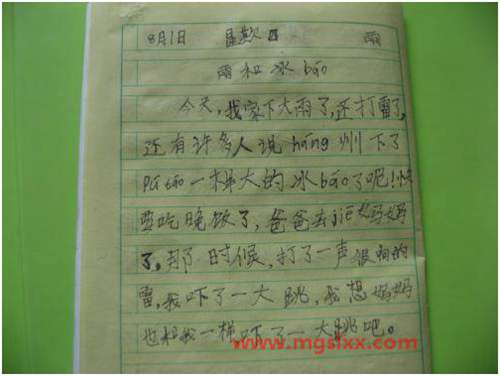 8月1日 星期 雨
雨和冰báo
今天,我家下大雨了,还打雷了,
还有许多人说háng州下了
Pú táo一样大的冰báo了呢!快
要吃晚饭了,爸爸去jiē妈妈
了,那时候,打了一声很响的
雷,我吓了一大跳,我想妈妈
也和我一样吓了一大跳吧。
www.mgslxx.com